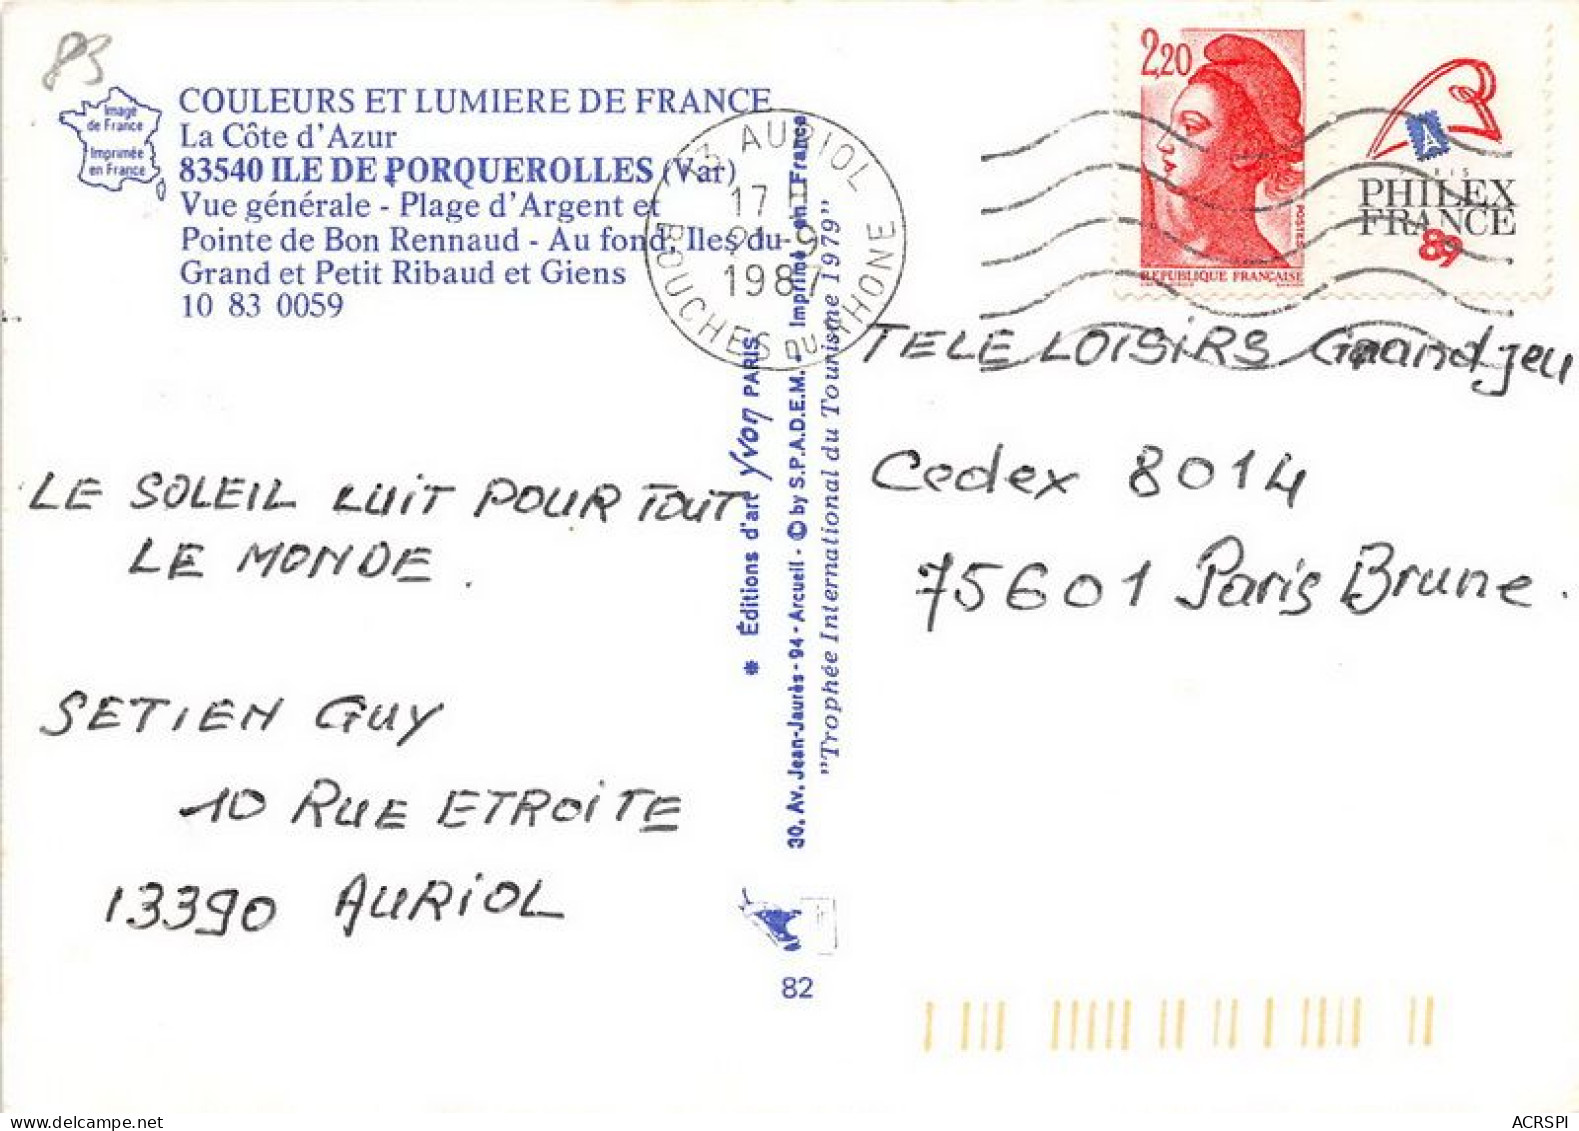 83
Image
de France
Imprimée
en France
COULEURS ET LUMIERE DE FRANCE
La Côte d'Azur
83540 ILE DE PORQUEROLLES (Var)
Vue générale - Plage d'Argent et
Pointe de Bon Rennaud - Au fond, Iles du
Grand et Petit Ribaud et Giens
10 83 0059
13 AURIOL
17 H
21-9
1987
BOUCHES DU RHONE
2,20
POSTES
REPUBLIQUE FRANÇAISE
A
PARIS
PHILEX
FRANCE
89
LE SOLEIL LUIT POUR TOUT
LE MONDE.
SETIEN GUY
10 RUE ETROITE
13390 AURIOL
* Éditions d'art Yvon PARIS
30, Av. Jean-Jaurès - 94 - Arcueil - © by S.P.A.D.E.M. - Imprimé en France
"Trophée International du Tourisme 1979"
82
TELE LOISIRS Grand jeu
Cedex 8014
75601 Paris Brune.
ACRSPI